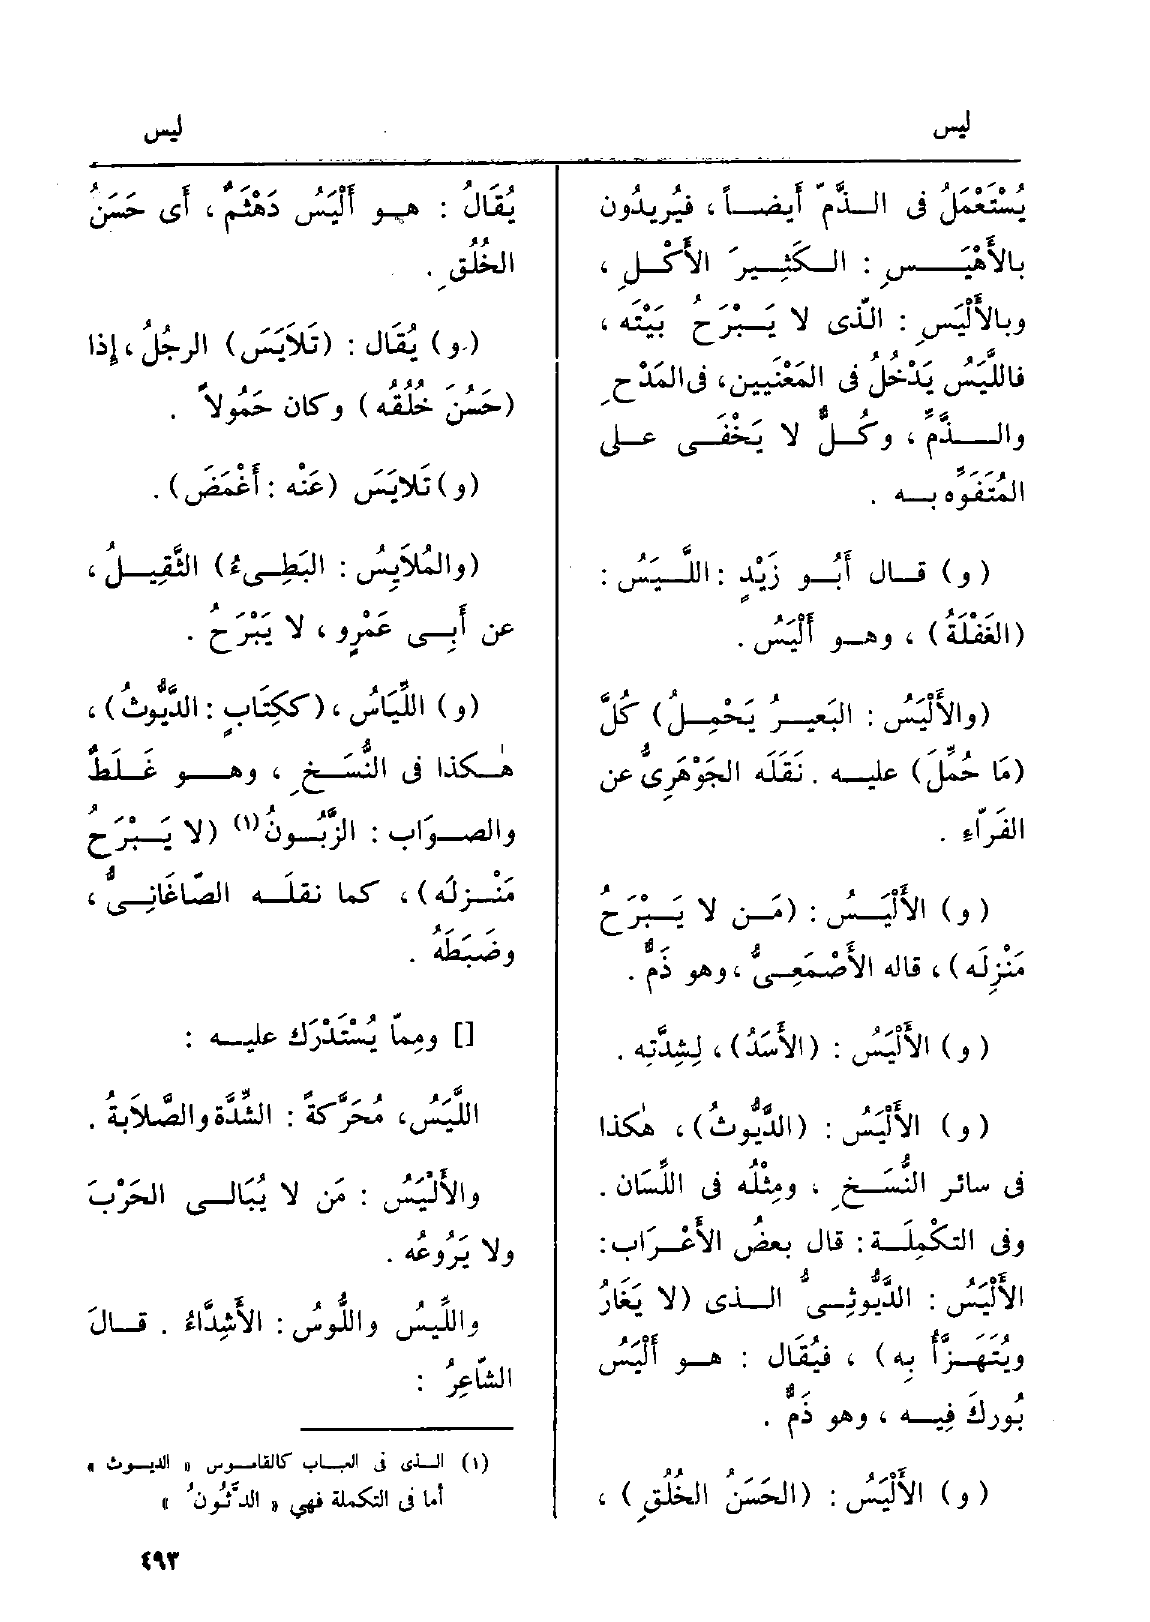 ليس
ليس
يُسْتَعْمَلُ فى الذَّمّ أَيضاً ، فيُرِيدُون
بالأَهْيَسِ : الكَثِيرَ الأَكْلِ ،
وبالأَلْيَسِ : الّذى لا يَبْرَحُ بَيْتَه ،
فاللَّيَسُ يَدْخُلُ فى المَعْنَيين، فى المَدْحِ
والذَّمِّ ، وكُلٌّ لا يَخْفَى على
المُتَفَوِّه به .
( و ) قال أَبُو زَيْدٍ : اللَّيَسُ :
(الغَفْلَةُ) ، وهو أَلْيَسُ .
(والأَلْيَسُ : البَعيرُ يَحْمِلُ) كُلَّ
(مَا حُمِّلَ) عليه . نَقَلَه الجَوْهَرِىُّ عن
الفَرّاءِ .
( و ) الأَلْيَسُ : (مَن لا يَبْرَحُ
مَنْزِلَه) ، قاله الأَصْمَعِىُّ ، وهو ذَمٌّ .
( و ) الأَلْيَسُ : (الأَسَدُ) ، لِشِدَّتِه .
( و ) الأَلْيَسُ : (الدَّيُّوثُ) ، هٰكذا
فى سائر النُّسَخِ ، ومِثْلُه فى اللِّسَان .
وفى التكْمِلَة : قال بعضُ الأَعْرَاب :
الأَلْيَسُ : الدَّيُّوثِىُّ الذى (لا يَغَارُ
ويُتَهَزَّأُ بِه) ، فيُقَال : هو أَلْيَسُ
بُورِكَ فِيه ، وهو ذَمٌّ .
( و ) الأَلْيَسُ : (الحَسَنُ الخُلُقِ) ،
يُقَالُ : هو أَلْيَسُ دَهْثَمٌ ، أَى حَسَنُ
الخُلُقِ .
(و) يُقَال : (تَلَايَسَ) الرجُلُ ، إِذا
(حَسُنَ خُلُقُه) وكان حَمُولاً .
(و) تَلايَسَ (عَنْه : أَغْمَضَ) .
(والمُلَايِسُ : البَطِىءُ) الثَّقِيلُ ،
عن أَبِى عَمْرٍو ، لا يَبْرَحُ .
(و) اللِّيَاسُ ، (ككِتَابٍ : الدَّيُّوثُ) ،
هٰكذا فى النُّسَخِ ، وهو غَلَطٌ
والصوَاب : الزَّبُّونُ(١) (لا يَبْرَحُ
مَنْزِلَه) ، كما نقلَه الصّاغَانِىُّ ،
وضَبَطَهُ .
[] ومِمّا يُسْتَدْرَك عليه :
اللَّيَسُ، مُحَرَّكةً : الشِّدَّة والصَّلَابةُ .
والأَلْيَسُ : مَن لا يُبَالى الحَرْبَ
ولا يَرُوعُه .
واللِّيسُ واللُّوسُ : الأَشِدَّاءُ . قالَ
الشّاعِرُ :
(١) الذى فى العباب كالقاموس « الديوث »
أما فى التكملة فهي « الدَّثُونُ »
٤٩٣